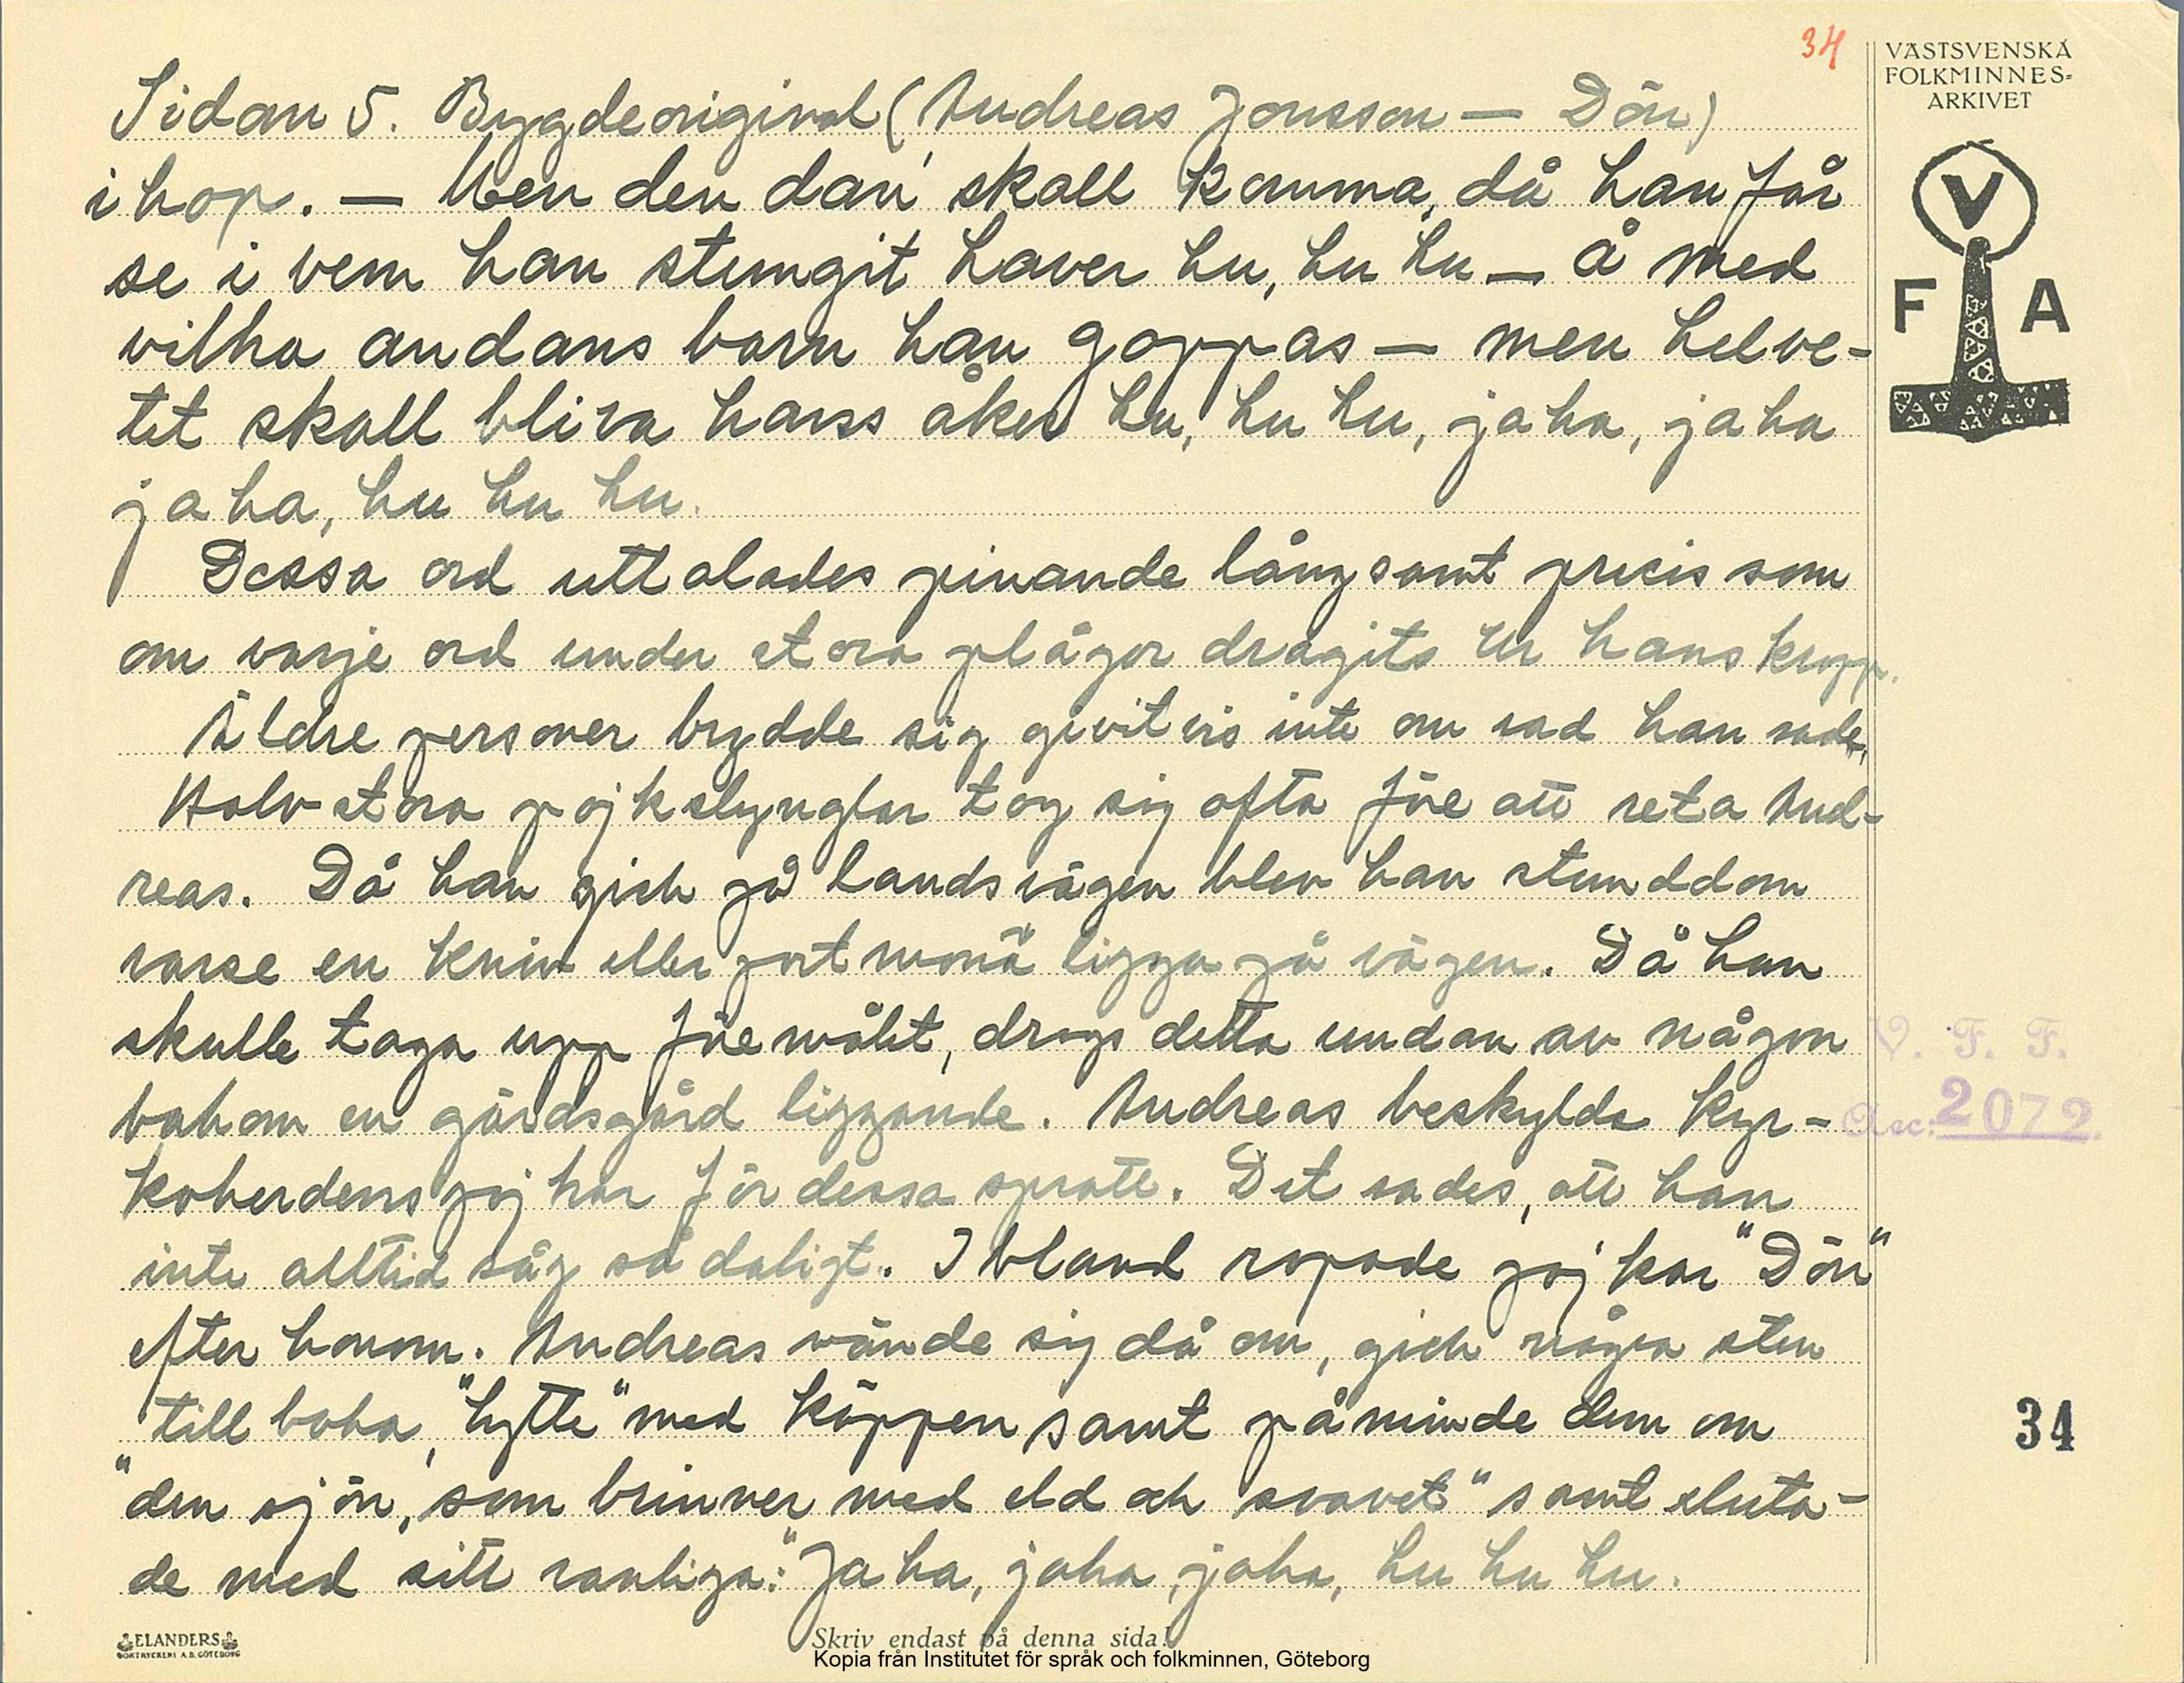 34
VÄSTSVENSKA
FOLKMINNES-
ARKIVET
V
F A
Sidan 5. Bygdeoriginal (Andreas Jonsson — Dön)
ihop. — Men den dan' skall komma, då han får
se i vem han stungit haver hu, hu hu — Å med
vilka andans barn han gappas — men helve-
tet skall bliva hans åker hu, hu hu, jaha, jaha
jaha, hu hu hu.
Dessa ord uttalades pinande långsamt precis som
om varje ord under stora plågor dragits ur hans kropp.
Äldre personer brydde sig givitvis inte om vad han sade,
Halvstora pojkslynglar tog sig ofta före att reta And-
reas. Då han gick på landsvägen blev han stunddom
varse en kniv eller portmonä ligga på vägen. Då han
skulle taga upp föremålet, drogs detta undan av någon
bakom en gärdsgård liggande. Andreas beskylde kyr-
koherdens pojkar för dessa spratt. Det sades, att han
inte alltid såg så daligt. Ibland ropade pojkar "Dön"
efter honom. Andreas vände sig då om, gick några sten
till baka, "hytte" med käppen samt påminde dem om
"den sjön, som brinner med eld och svavel" samt sluta-
de med sitt vanliga: "Jaha, jaha, jaha, hu hu hu.
V. F. F.
Acc: 2072
34
ELANDERS
BOKTRYCKERI A.B. GÖTEBORG
Skriv endast på denna sida!
Kopia från Institutet för språk och folkminnen, Göteborg